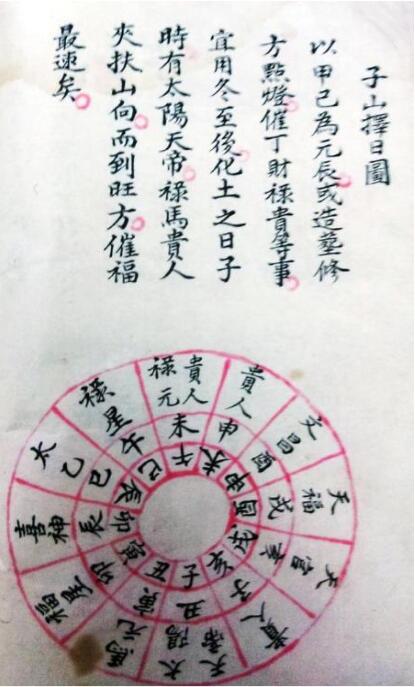 子山擇日圖
以甲己為元辰或造塟修
方點燈催丁財祿貴等事
宜用冬至後化土之日子
時有太陽天帝祿馬貴人
夾扶山向而到旺方催福
最速矣
貴人
祿元
貴人
文昌
天福
天官
貴人
天帝
太陽
馬元
福星
喜神
太乙
祿星
未
申
酉
戌
亥
子
丑
寅
卯
辰
巳
午
午
未
申
酉
戌
亥
子
丑
寅
卯
辰
巳